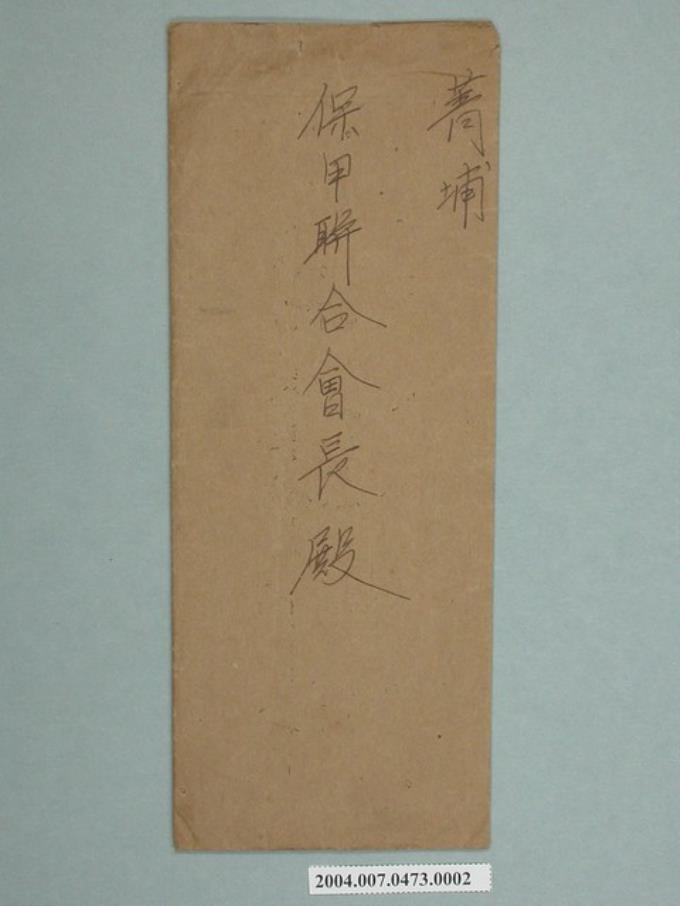 菁埔
保甲聯合會長殿
2004.007.0473.0002